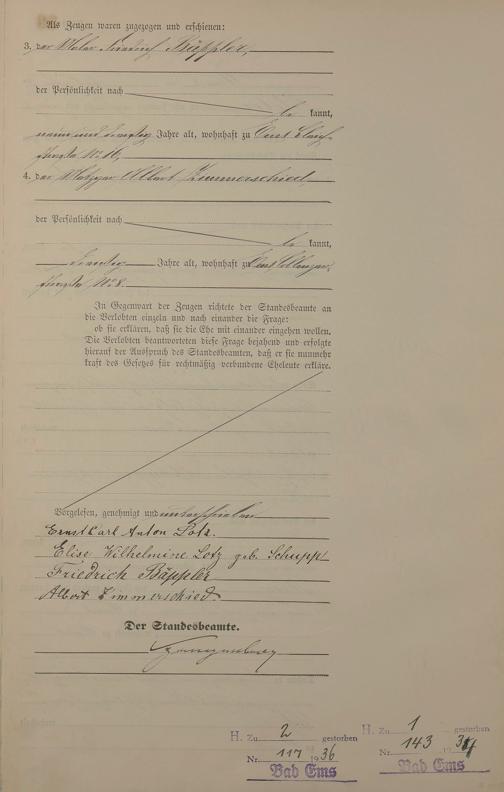 Als Zeugen waren zugezogen und erschienen:
3. der Maler Friedrich Bäppler,
der Persönlichkeit nach
be kannt,
neunundzwanzig Jahre alt, wohnhaft zu Ems
No 16,
4. der Metzger Albert Zimmerschied,
der Persönlichkeit nach
be kannt,
zwanzig Jahre alt, wohnhaft zu Ems
No 8.
In Gegenwart der Zeugen richtete der Standesbeamte an
die Verlobten einzeln und nach einander die Frage:
ob sie erklären, daß sie die Ehe mit einander eingehen wollen.
Die Verlobten beantworteten diese Frage bejahend und erfolgte
hierauf der Ausspruch des Standesbeamten, daß er sie nunmehr
kraft des Gesetzes für rechtmäßig verbundene Eheleute erkläre.
Vorgelesen, genehmigt und unterschrieben
Ernst Carl Anton Lotz.
Elise Wilhelmine Lotz geb. Schupp
Friedrich Bäppler
Albert Zimmerschied.
Der Standesbeamte.
H. Zu 2 gestorben
Nr. 117 1936
Bad Ems
H. Zu 1 gestorben
Nr. 143 19
Bad Ems